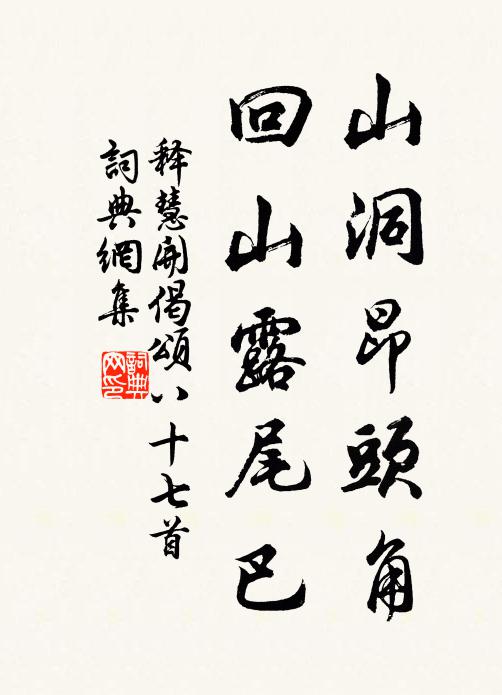 山洞昂頭角
回山露尾巴
释慧開偈頌八十七首
詞典網集
詞典
网印